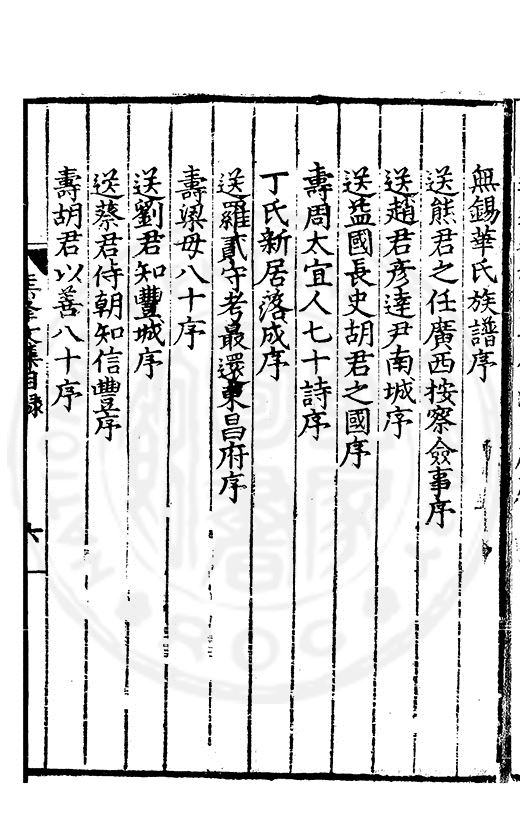 無錫華氏族譜序
送熊君之任廣西按察僉事序
送趙君彥達尹南城序
送益國長史胡君之國序
壽周太宜人七十詩序
丁氏新居落成序
送羅貳守考最還東昌府序
壽梁母八十序
送劉君知豐城序
送蔡君侍朝知信豐序
壽胡君以善八十序
文集目錄
六